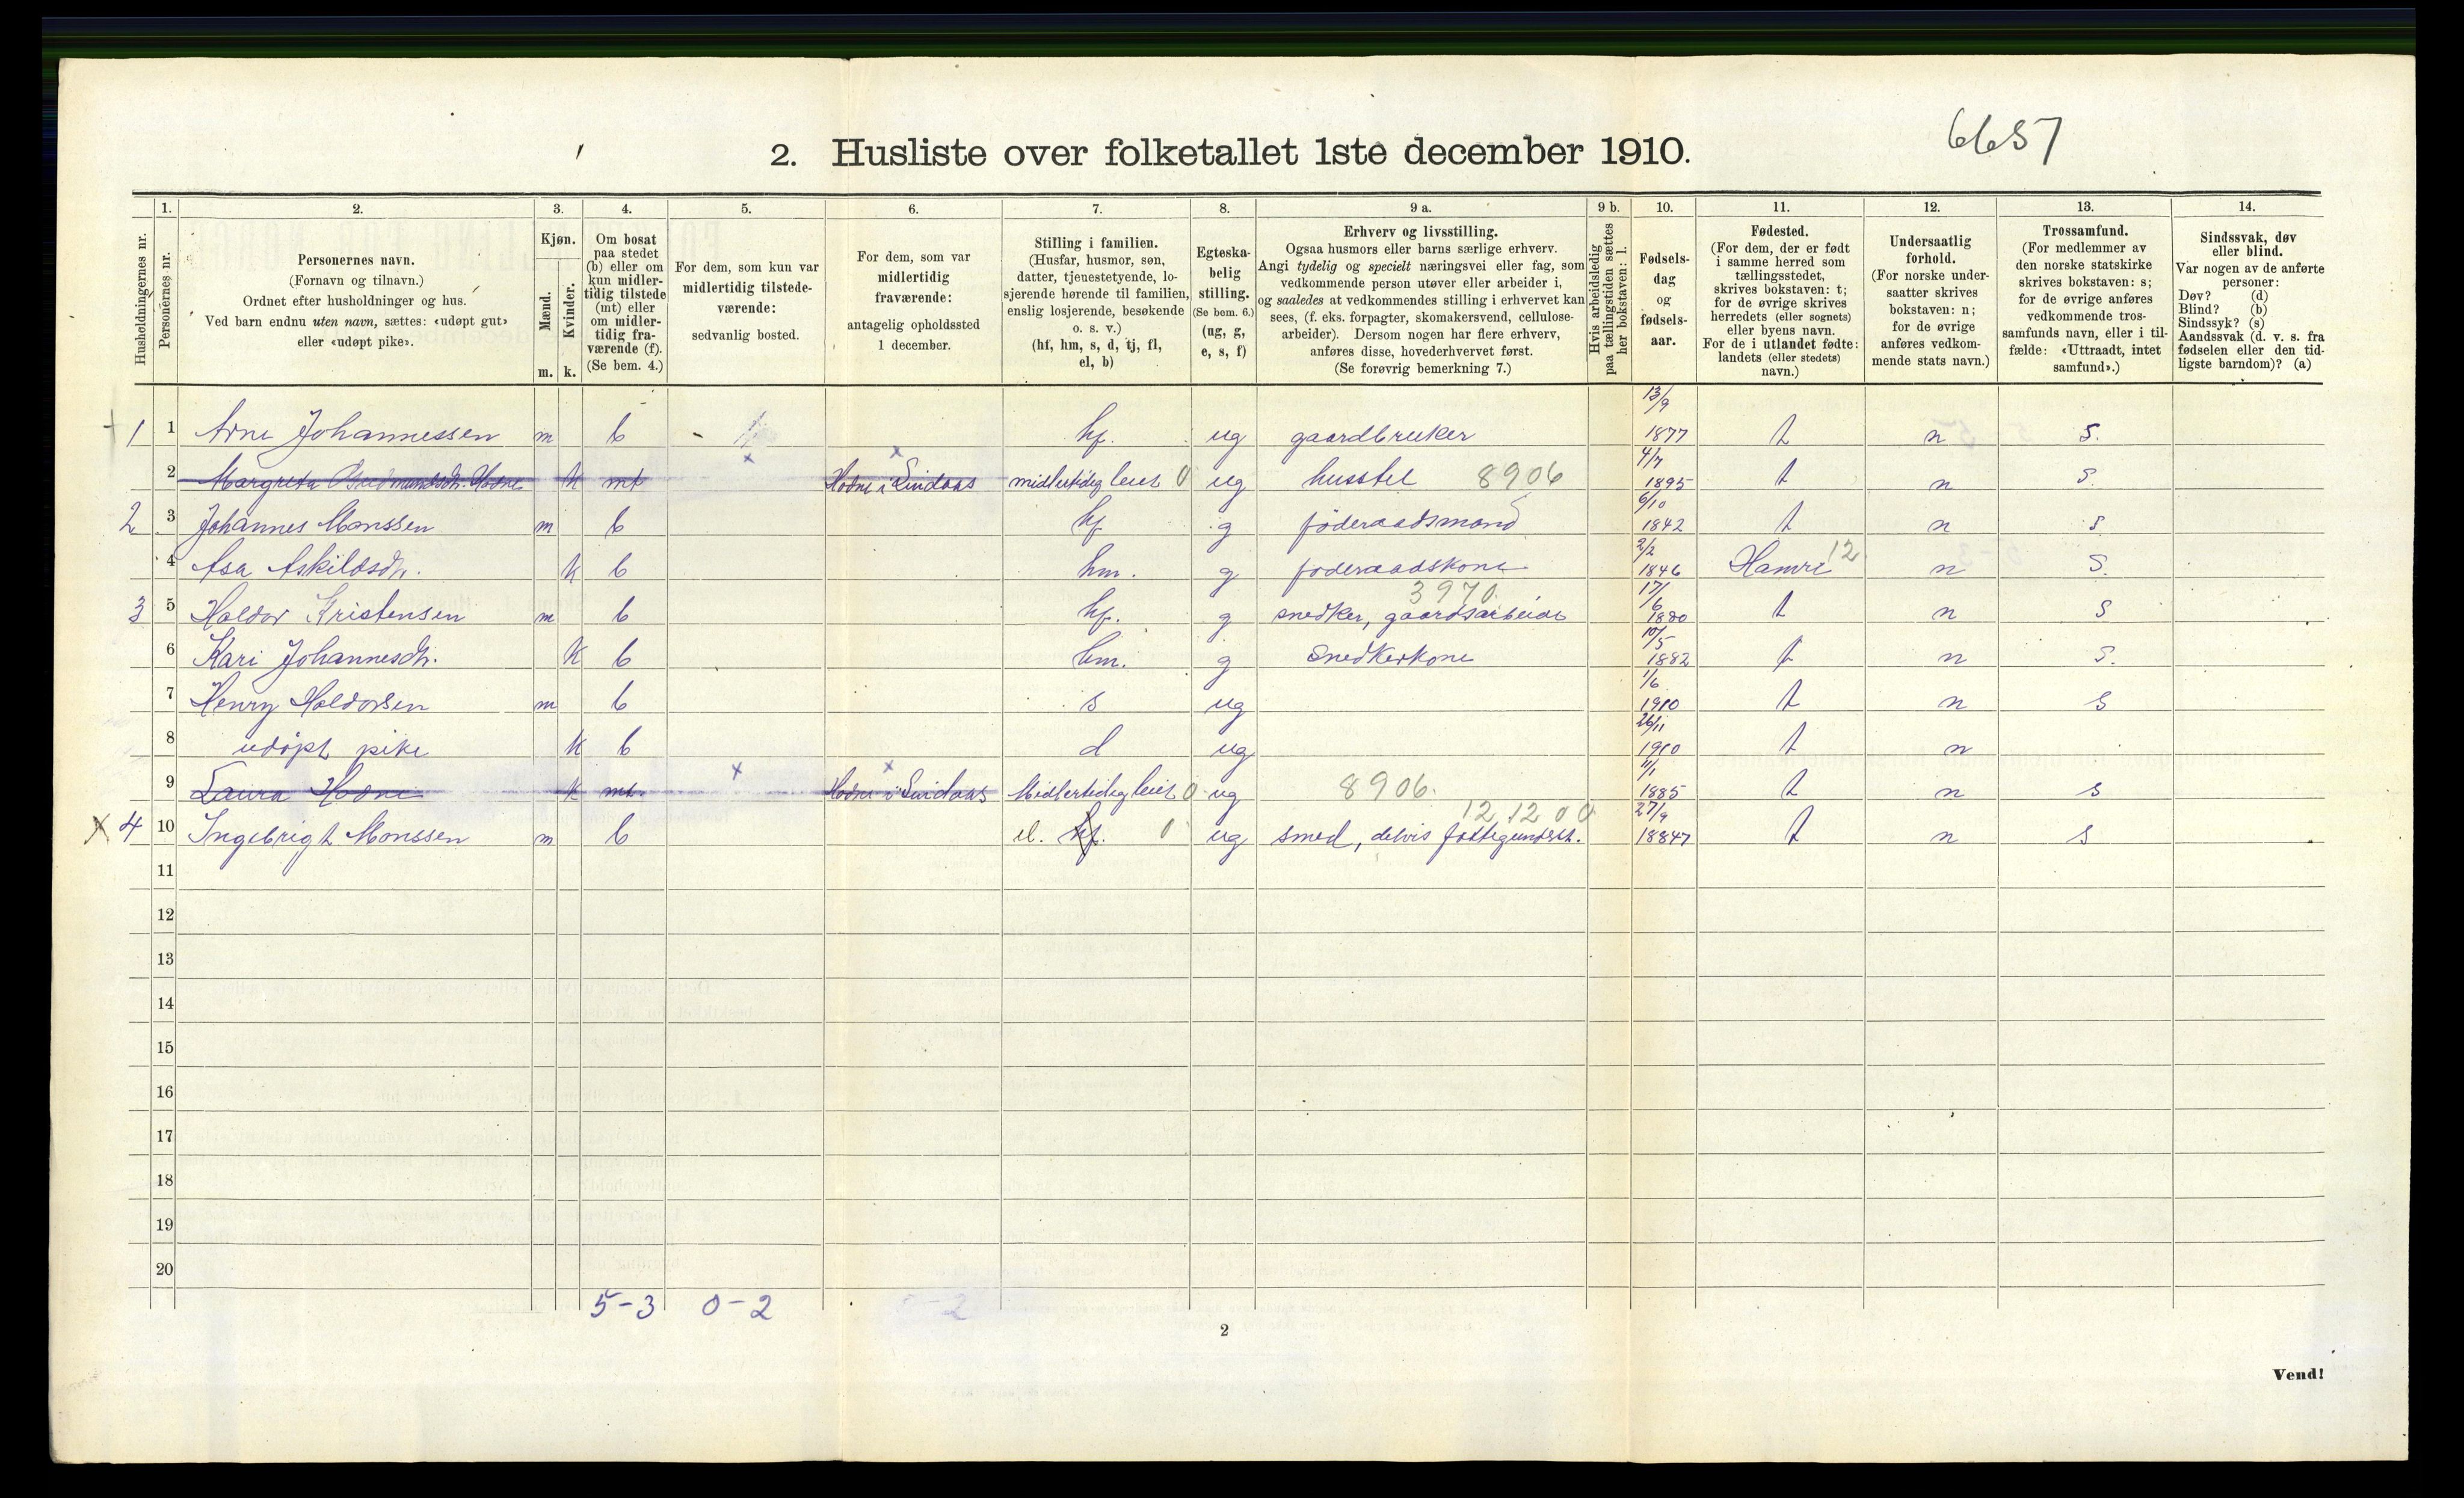 6657
2. Husliste over folketallet 1ste december 1910.
Husholdningernes nr.
1.
Personernes nr.
2.
Personernes navn.
(Fornavn og tilnavn.)
Ordnet efter husholdninger og hus.
Ved barn endnu uten navn, sættes: «udøpt gut»
eller «udøpt pike».
3.
Kjøn.
Mænd.
Kvinder.
m. k.
4.
Om bosat
paa stedet
(b) eller om
kun midler-
tidig tilstede
(mt) eller
om midler-
tidig fra-
værende (f).
(Se bem. 4.)
5.
For dem, som kun var
midlertidig tilstede-
værende:
sedvanlig bosted.
6.
For dem, som var
midlertidig
fraværende:
antagelig opholdssted
1 december.
7.
Stilling i familien.
(Husfar, husmor, søn,
datter, tjenestetyende, lo-
sjerende hørende til familien,
enslig losjerende, besøkende
o. s. v.)
(hf, hm, s, d, tj, fl,
el, b)
8.
Egteska-
belig
stilling.
(Se bem. 6.)
(ug, g,
e, s, f)
9 a.
Erhverv og livsstilling.
Ogsaa husmors eller barns særlige erhverv.
Angi tydelig og specielt næringsvei eller fag, som
vedkommende person utøver eller arbeider i,
og saaledes at vedkommendes stilling i erhvervet kan
sees, (f. eks. forpagter, skomakersvend, cellulose-
arbeider). Dersom nogen har flere erhverv,
anføres disse, hovederhvervet først.
(Se forøvrig bemerkning 7.)
9 b.
Hvis arbeidsledig
paa tællingstiden sættes
her bokstaven: l.
10.
Fødsels-
dag
og
fødsels-
aar.
11.
Fødested.
(For dem, der er født
i samme herred som
tællingsstedet,
skrives bokstaven: t;
for de øvrige skrives
herredets (eller sognets)
eller byens navn.
For de i utlandet fødte:
landets (eller stedets)
navn.)
12.
Undersaatlig
forhold.
(For norske under-
saatter skrives
bokstaven: n;
for de øvrige
anføres vedkom-
mende stats navn.)
13.
Trossamfund.
(For medlemmer av
den norske statskirke
skrives bokstaven: s;
for de øvrige anføres
vedkommende tros-
samfunds navn, eller i til-
fælde: «Uttraadt, intet
samfund».)
14.
Sindssvak, døv
eller blind.
Var nogen av de anførte
personer:
Døv? (d)
Blind? (b)
Sindssyk? (s)
Aandssvak (d. v. s. fra
fødselen eller den tid-
ligste barndom)? (a)
1 1 Arne Johannessen m b hf. ug gaardbruker 13/9 1877 t n s.
2 Margreta Hodne k mt x Hodne i Lindaas x midlertidig leiet 0 ug husstel 8906 4/7 1895 t n s.
2 3 Johannes Monssen m b hf g føderaadsmand 6/10 1842 t n s
4 Asa Askildsdtr. k b hm. g føderaadskone 2/2 1846 Hamre 12 n s.
3 5 Haldor Kristensen m b hf. g snedker, gaardsarbeide 3970 17/6 1880 t n s
6 Kari Johannesdtr. k b hm. g Snedkerkone 10/5 1882 t n s.
7 Henry Haldorsen m b s ug 1/6 1910 t n s
8 udøpt pike k b d ug 26/11 1910 t n
9 Laura Hodne k mt. x Hodne i Lindaas x Midlertidig leiet 0 ug 8906. 1/1 1885 t n s
x 4 10 Ingebrigt Monssen m b el. hf. 0 ug smed, delvis fattigunderst. 12 12 0 0 27/9 1847 t n s
11
12
13
14
15
16
17
18
19
20
5-3 0-2 0-2
2
Vend!